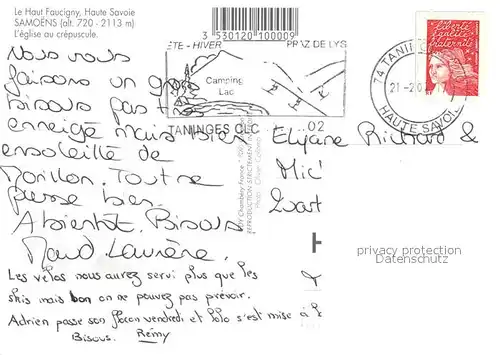 Le Haut Faucigny, Haute Savoie
SAMOËNS (alt. 720 - 2113 m)
L'église au crépuscule.
3 530120 100009
ETE - HIVER PRAZ DE LYS
Camping
Lac
TANINGES CLC 02
74 TANINGES
21-2-0
HAUTE SAVOIE
liberté
égalité
fraternité
Nous vous
faisons un gros
bisous pas très
enneigé mais bien
ensoleillé de
Morillon. Toutre
passe bien.
A bientôt. Bisous
Maud Laurène.
Les vélos nous aurez servi plus que les
skis mais bon on ne pouvez pas prévoir.
Adrien passe son flocon vendredi et Lolo s'est mise à l
Bisous. Rémy
Elyane Richard &
Mic'
REPRODUCTION STRICTEMENT
privacy protection
Datenschutz